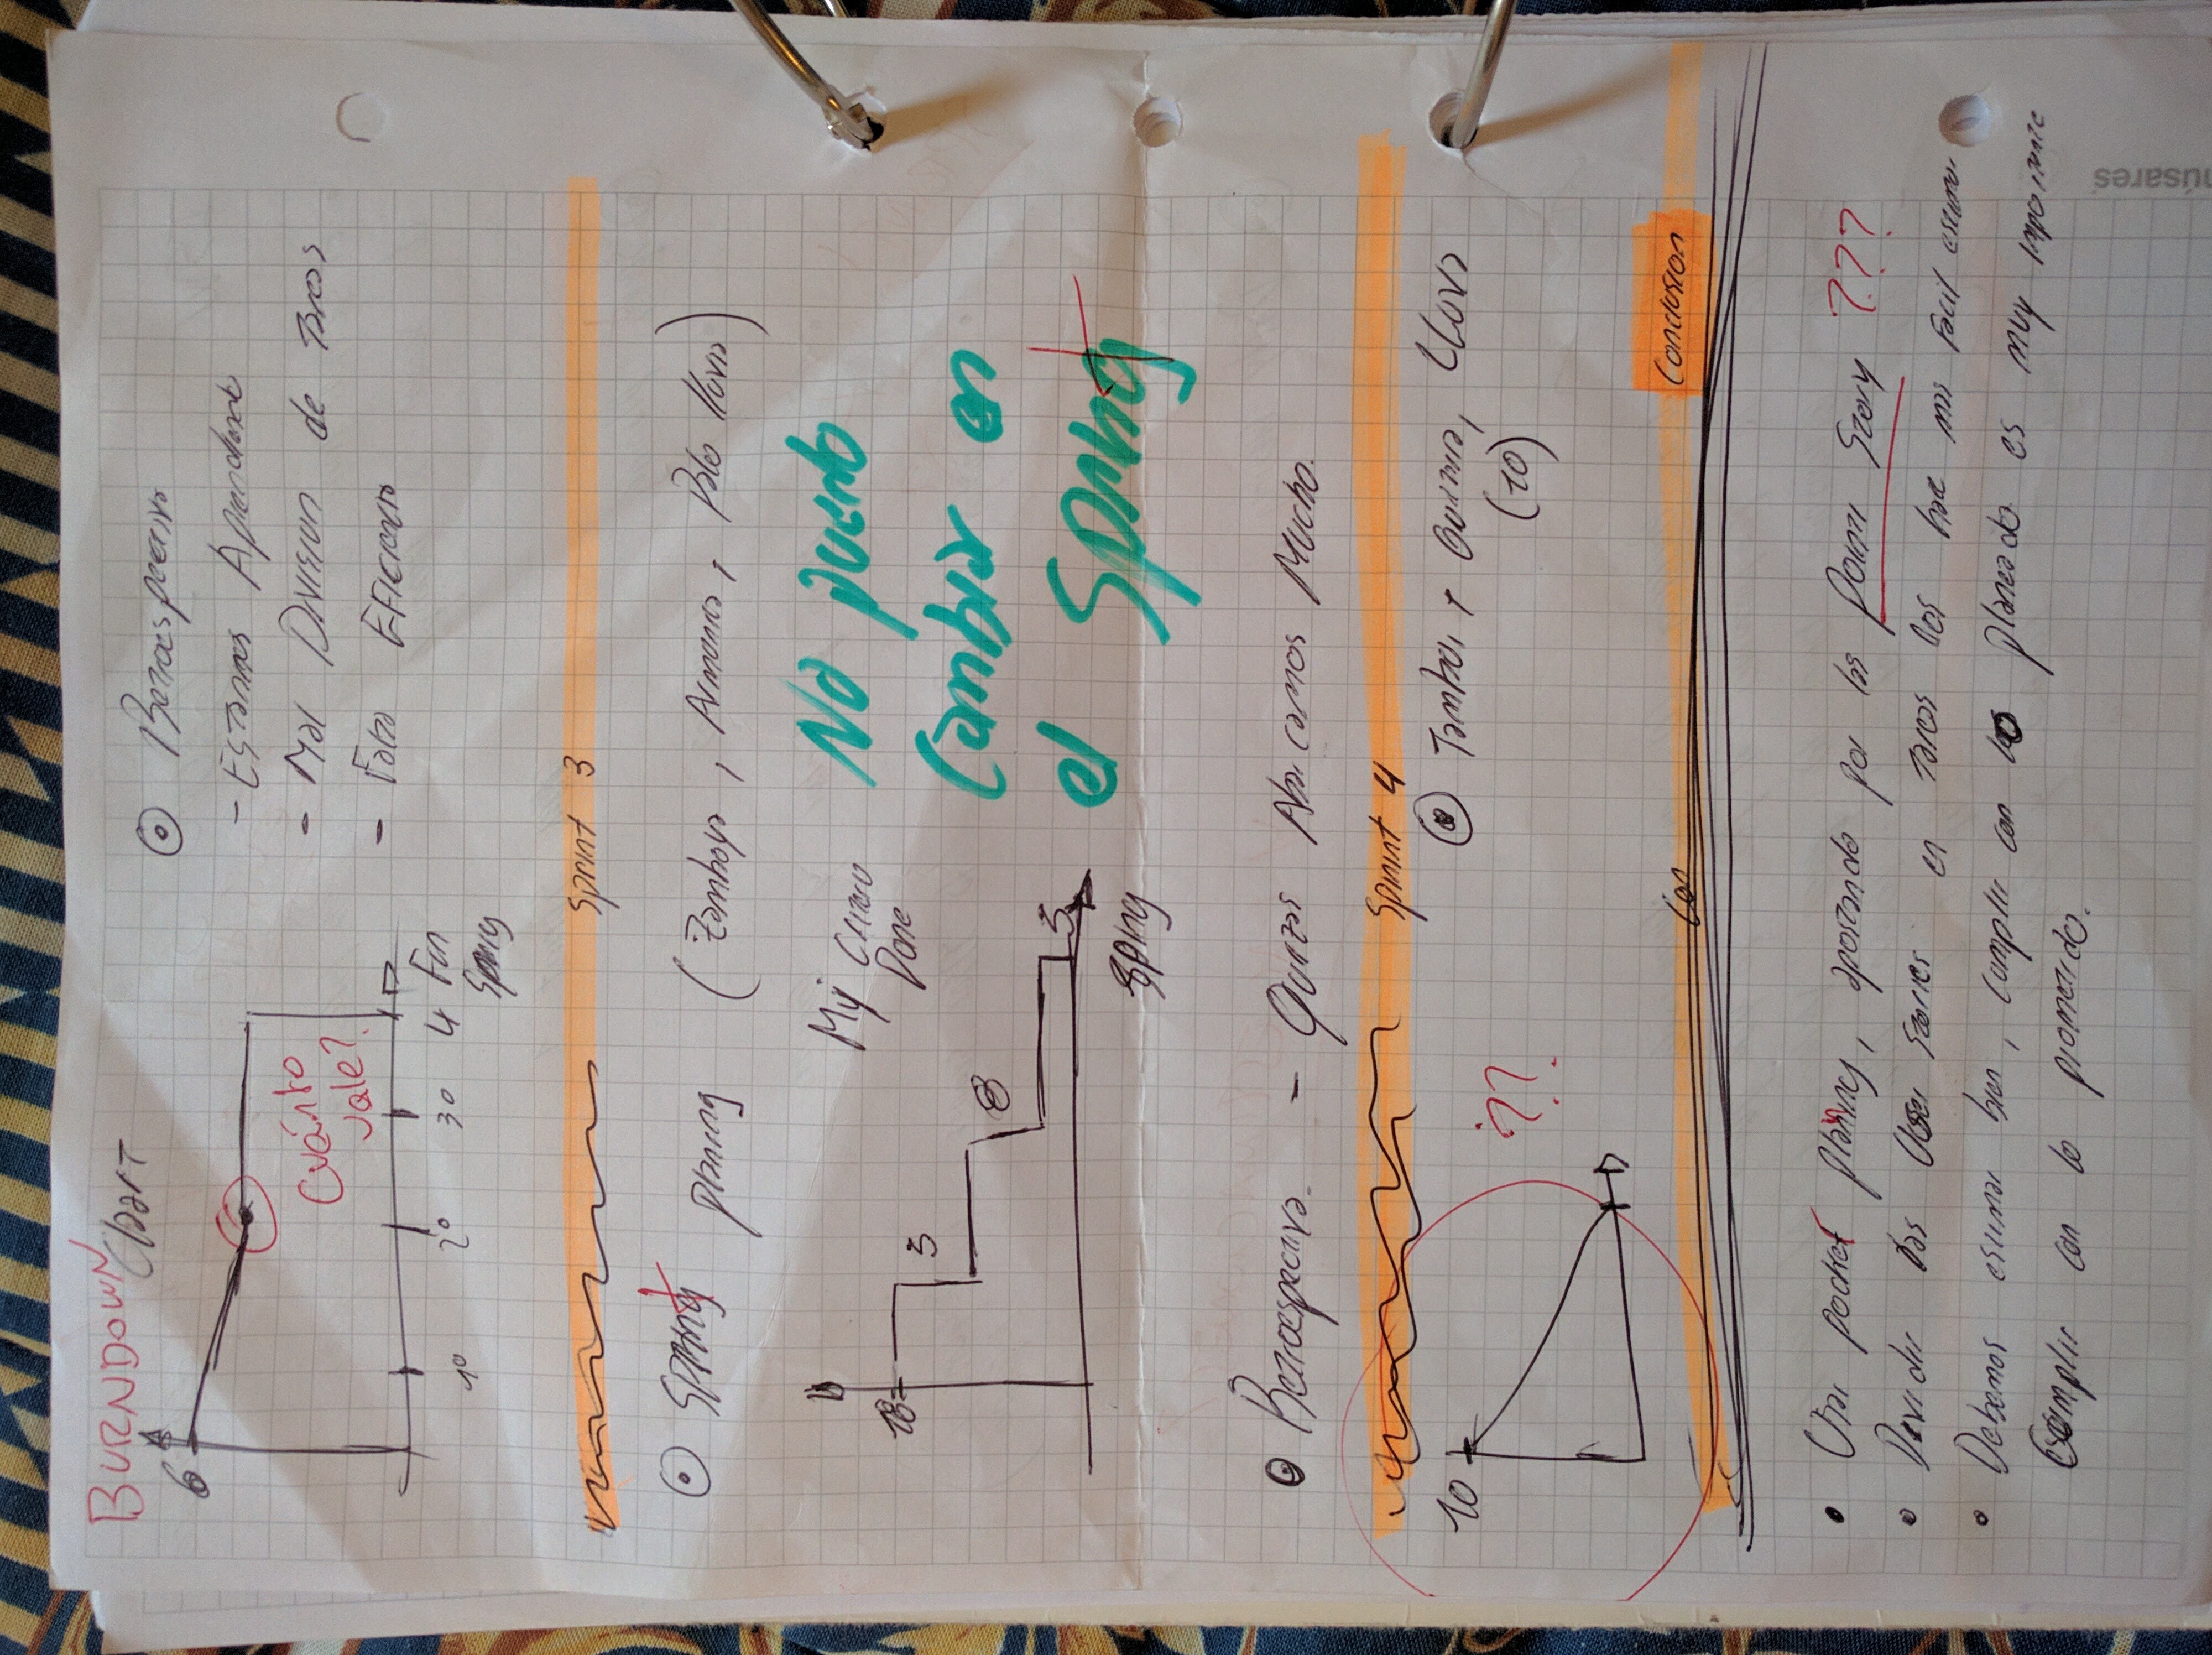 BURNDOWN Chart
6
Cuánto
vale?
1º 2º 3º 4 Fin
Spring
Retroespectiva
- Estamos Aprendiendo
- Mal Division de tareas
- Falta Eficiencia
Sprint 3
Sprint planing (Zamboya, Armonica, Palo lluvia)
18
5
8
5
Sping
My
Done
No puedo
Cambiar en
el Sprint
Retroespectiva. - Quizas Abarcamos Mucho.
Sprint 4
10
??
Tambor + Guitarra, Lluvia
(10)
Con
Conclusion
Usar pocket planning, apostando por las Point Story ???
Dividir las User stories en tareas nos hace mas facil estimar
Debemos estimar bien, cumplir con lo planeado es muy importante
Cumplir con lo prometido.
úsares